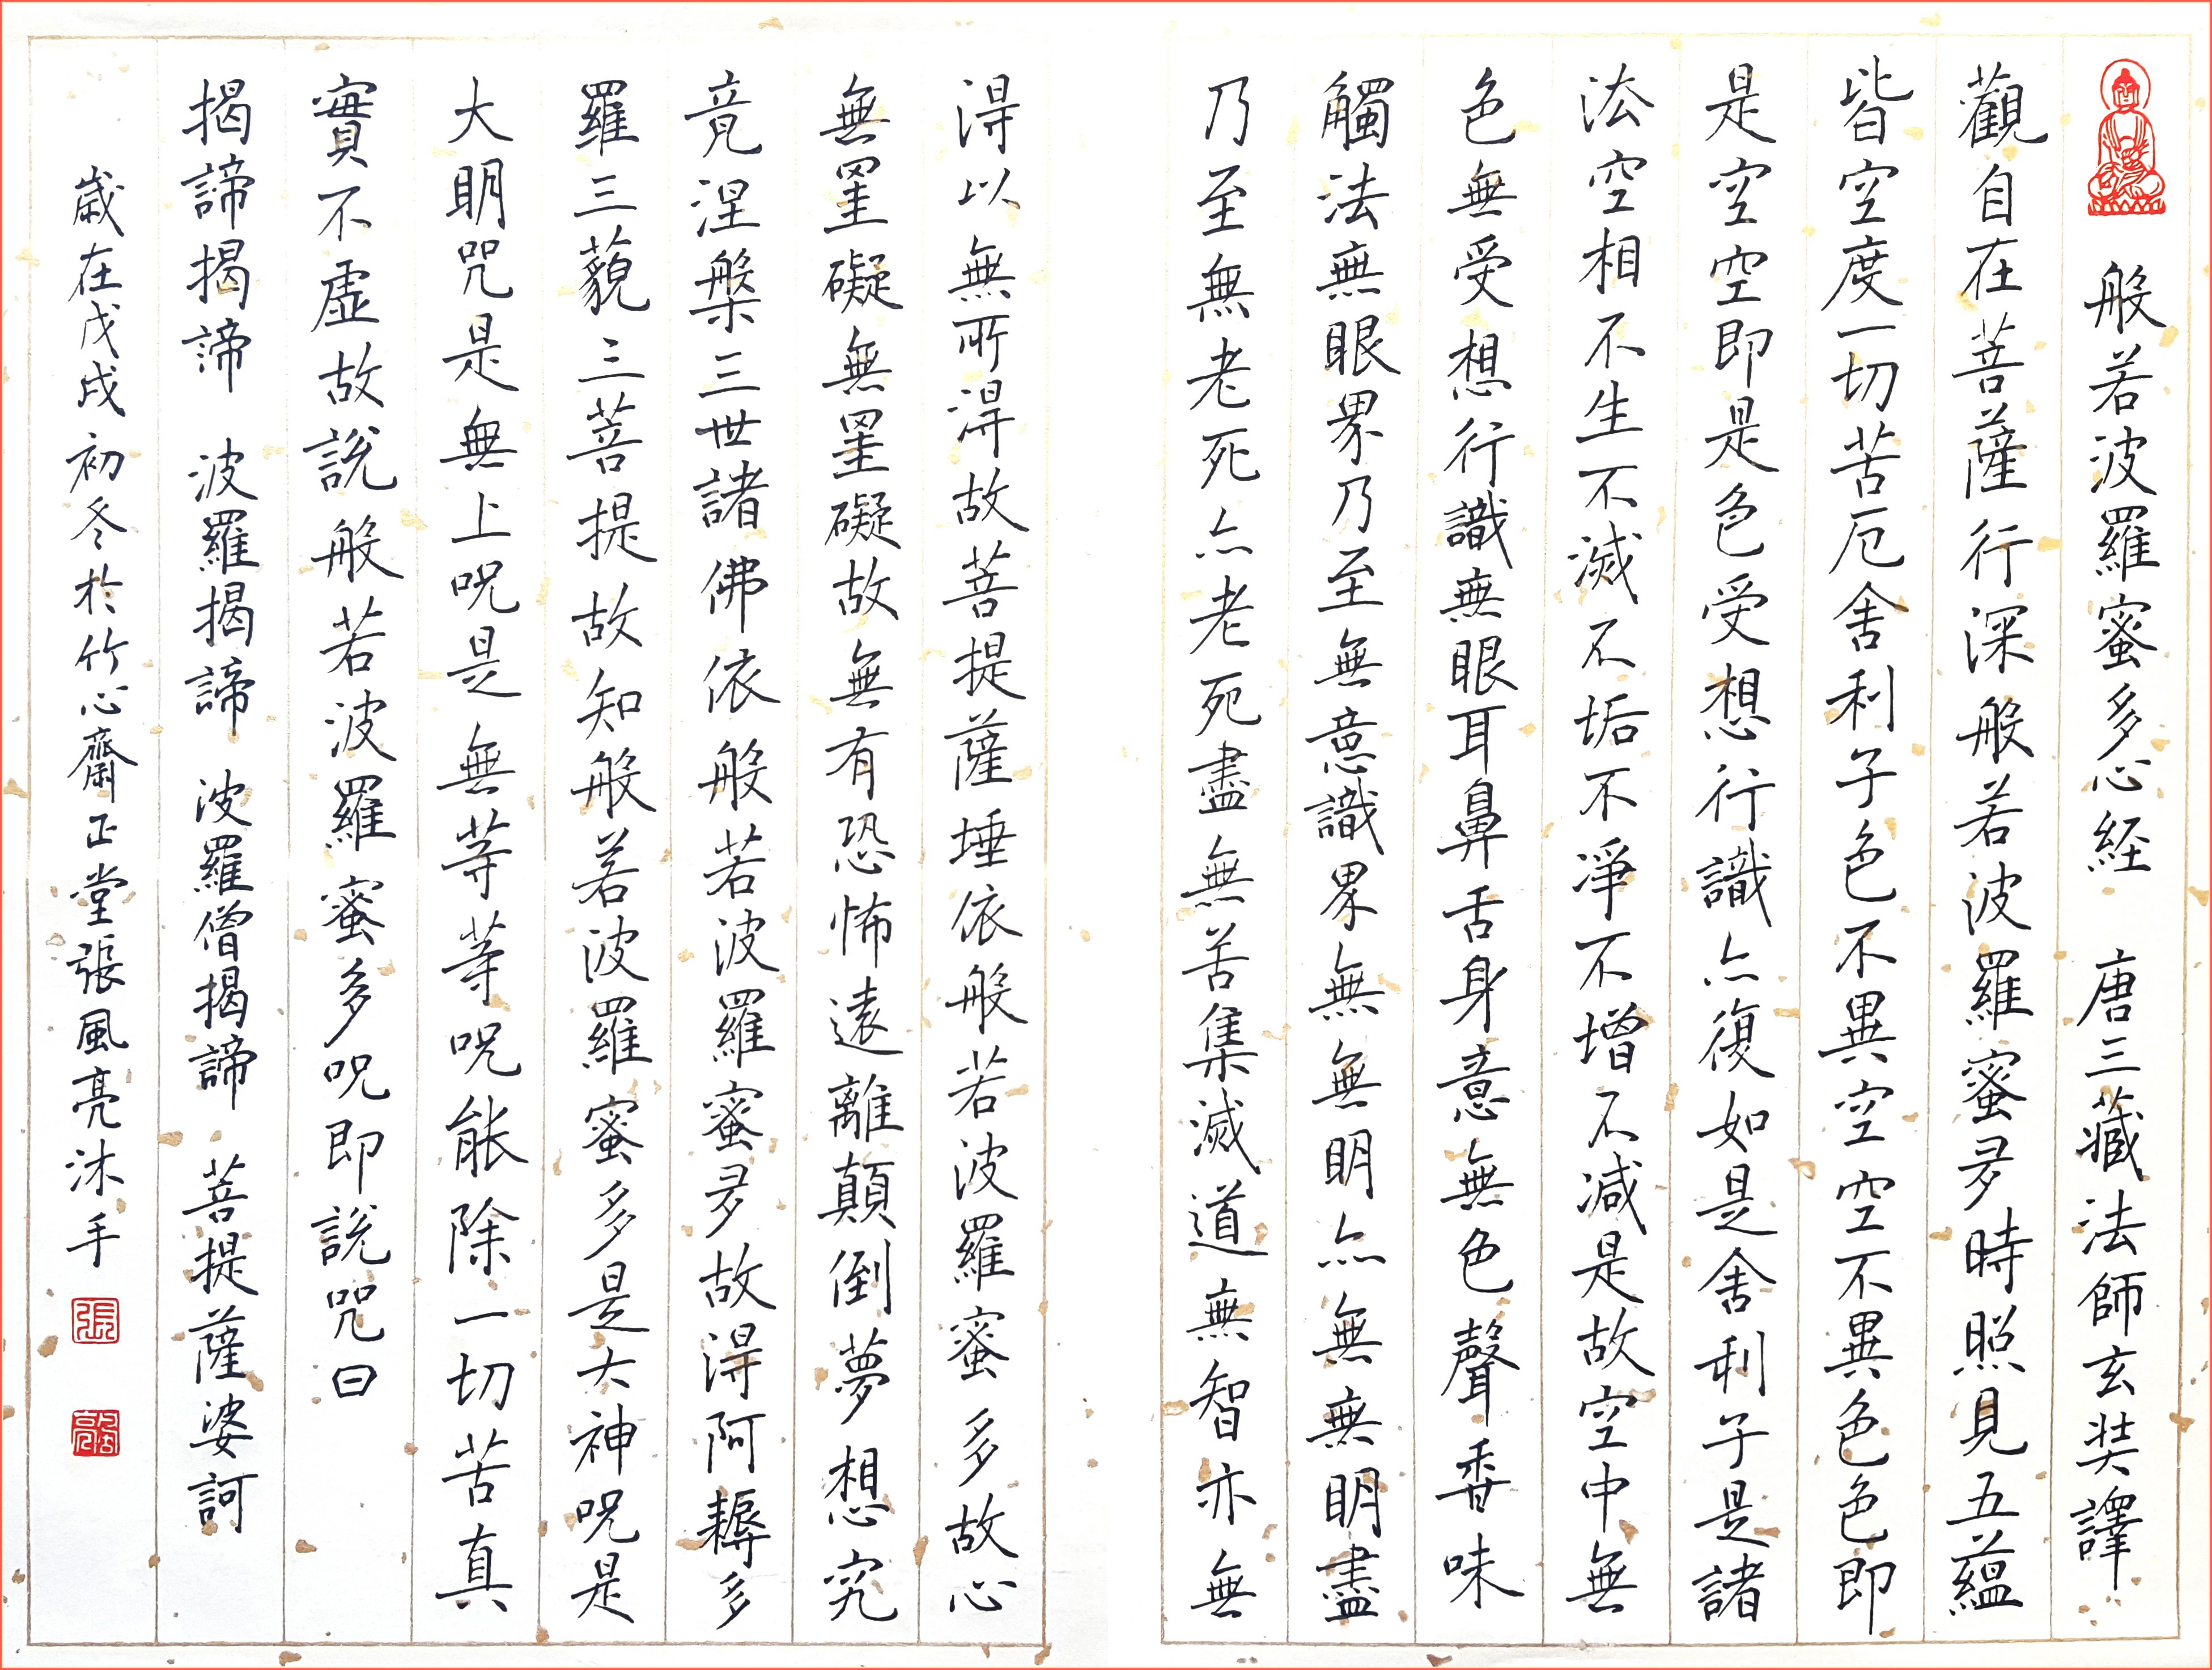 般若波羅蜜多心経 唐三藏法師玄奘譯
觀自在菩薩行深般若波羅蜜多時照見五蘊
皆空度一切苦厄舍利子色不異空空不異色色即
是空空即是色受想行識亦復如是舍利子是諸
法空相不生不滅不垢不淨不增不減是故空中無
色無受想行識無眼耳鼻舌身意無色聲香味
觸法無眼界乃至無意識界無無明亦無無明盡
乃至無老死亦無老死盡無苦集滅道無智亦無
得以無所得故菩提薩埵依般若波羅蜜多故心
無罣礙無罣礙故無有恐怖遠離顛倒夢想究
竟涅槃三世諸佛依般若波羅蜜多故得阿耨多
羅三藐三菩提故知般若波羅蜜多是大神呪是
大明咒是無上呪是無等等呪能除一切苦真
實不虛故說般若波羅蜜多呪即說咒曰
揭諦揭諦 波羅揭諦 波羅僧揭諦 菩提薩婆訶
歲在戊戌初冬於竹心齋正堂張風亮沐手
張